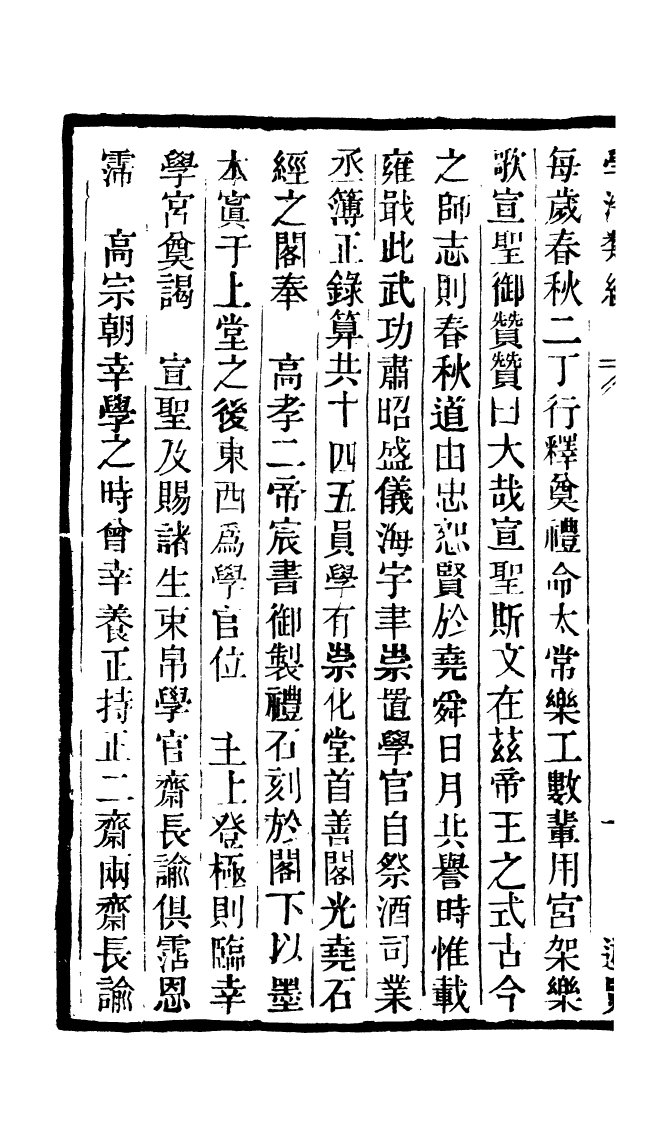 每歲春秋二丁行釋奠禮命太常樂工數輩用宮架樂
歌宣聖御贊贊曰大哉宣聖斯文在茲帝王之式古今
之師志則春秋道由忠恕賢於堯舜日月共譽時惟載
雍戢此武功肅昭盛儀海宇聿崇置學官自祭酒司業
丞簿正錄算共十四五員學有崇化堂首善閣光堯石
經之閣奉　高孝二帝宸書御製禮石刻於閣下以墨
本寘于上堂之後東西爲學官位　主上登極則臨幸
學宮奠謁　宣聖及賜諸生束帛學官齋長諭俱霑恩
霈　高宗朝幸學之時曾幸養正持正二齋兩齋長諭